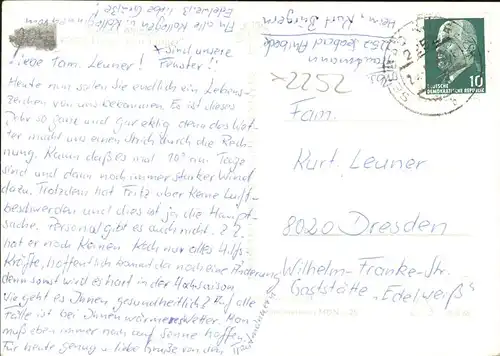 An alle Kollegen u. Kolleginnen vom
Edelweiß liebe Grüße!
x sind unsere
Fenster!
Liebe Fam. Leuner!
Heute nun sollen Sie endlich ein Lebens-
zeichen von uns bekommen. Es ist dieses
Jahr so ganz und gar eklig denn das Wet-
ter macht uns einen Strich durch die Rech-
nung. Kaum daß es mal 10° am Tage
sind und dann noch immer starker Wind
dazu. Trotzdem hat Fritz aber keine Luft-
beschwerden und dies ist ja die Haupt-
sache. Personal gibt es auch nicht. Z. Z.
hat er noch keinen Koch nur alles Hilfs-
kräfte, hoffentlich kommt da noch eine Änderung
denn sonst wird es hart in der Hochsaison.
Wie geht es Ihnen gesundheitlich? Auf alle
Fälle ist bei Ihnen wärmeres Wetter. Man
muß eben immer noch auf Sonne hoffen.
Für heute genug u. liebe Grüße von den
Hem, Kurt Bürgern
2252 Seebad Ahlbeck
2252
DEUTSCHE
DEMOKRATISCHE REPUBLIK
10
Fam.
Kurt Leuner
8020 Dresden
Wilhelm-Franke-Str.
Gaststätte „Edelweiß"